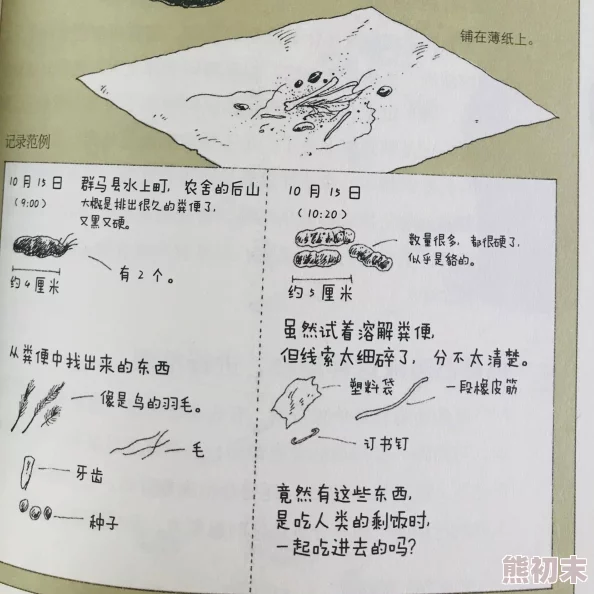 铺在薄纸上。
记录范例
10月15日
(9:00)
群马县水上町，农舍的后山
大概是排出很久的粪便了，
又黑又硬。
有2个。
约4厘米
从粪便中找出来的东西
像是鸟的羽毛。
毛
牙齿
种子
10月15日
(10:20)
数量很多，都很硬了，
似乎是貉的。
约5厘米
虽然试着溶解粪便，
但线索太细碎了，分不太清楚。
塑料袋
一段橡皮筋
订书钉
竟然有这些东西，
是吃人类的剩饭时，
一起吃进去的吗？
熊初末